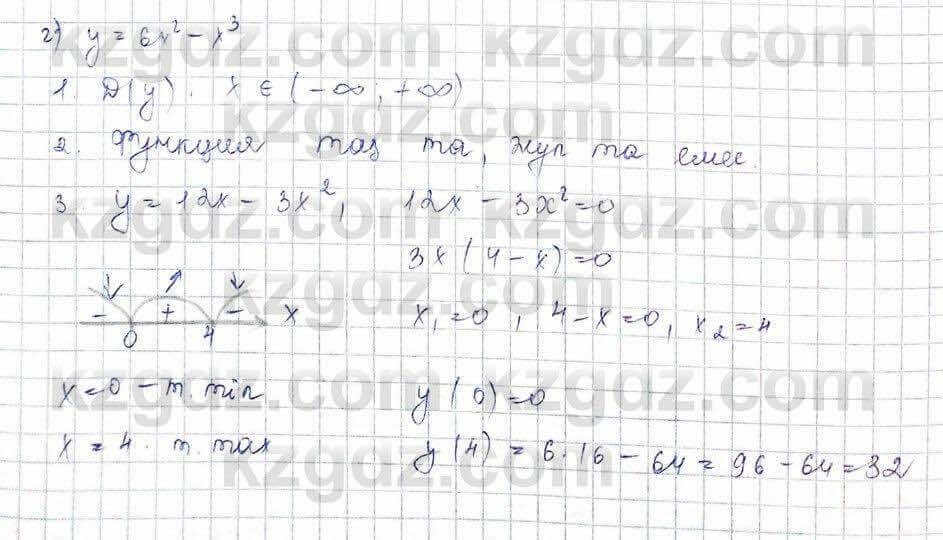 2) y = 6x² - x³
1. D(y). x ∈ (-∞; +∞)
2. Функция тақ та, жұп та емес.
3. y = 12x - 3x², 12x - 3x² = 0
3x(4 - x) = 0
- + - x
0 4
x₁ = 0, 4 - x = 0, x₂ = 4
x = 0 - т. min y(0) = 0
x = 4. т. max y(4) = 6·16 - 64 = 96 - 64 = 32
kzgdz.com kzgdz.com
kzgdz.com
kzgdz.com kzgdz.com
kzgdz.com
kzgdz.com kzgdz.com
kzgdz.com